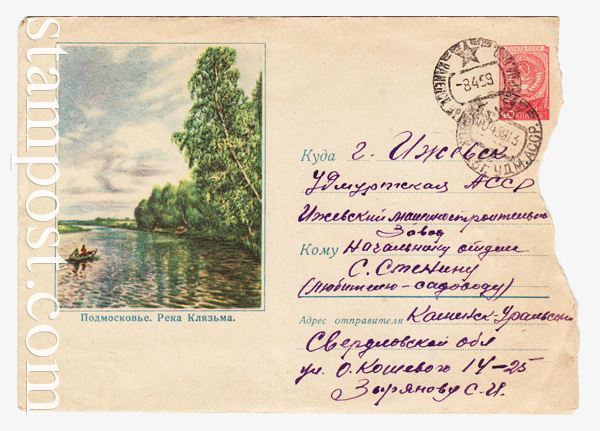 stampost.com
ПОЧТА СССР
40 КОПЕЕК
-8459
УДМ. АССР.
Подмосковье. Река Клязьма.
Куда г. Ижевск
Удмуртская АССР
Ижевский машиностроительн
Завод
Кому Начальнику отдела
С. Стенину
(любителю-садоводу)
Адрес отправителя Каменск-Уральский
Свердловской обл
ул. О. Кошевого 14-25
Зырянову С-И.